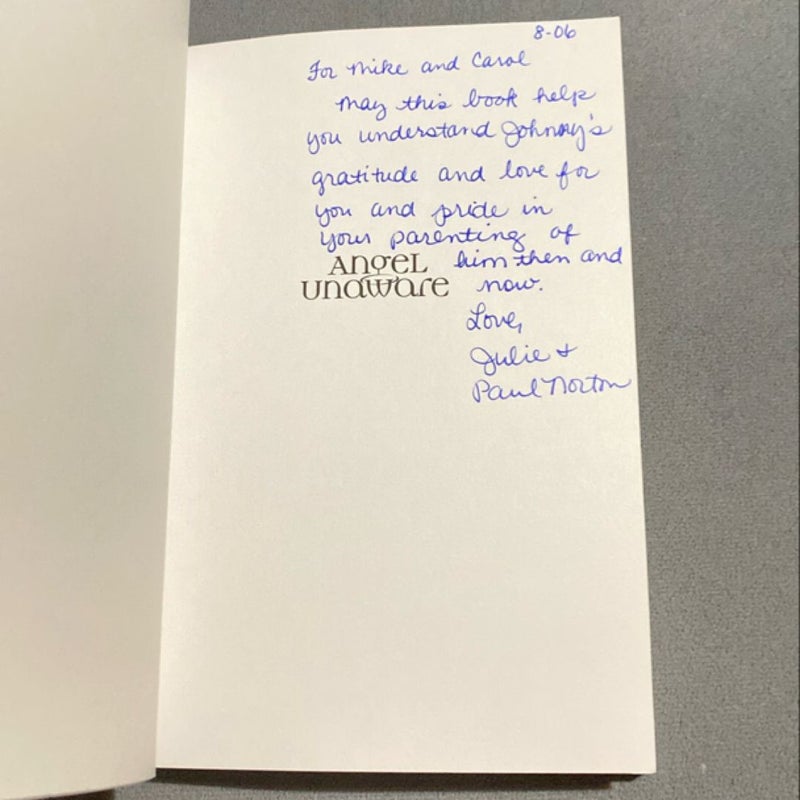 8-06
For Mike and Carol
May this book help
you understand Johnny's
gratitude and love for
you and pride in
your parenting of
him then and
now.
ANGEL
UNAWARE
Love,
Julie +
Paul Norton